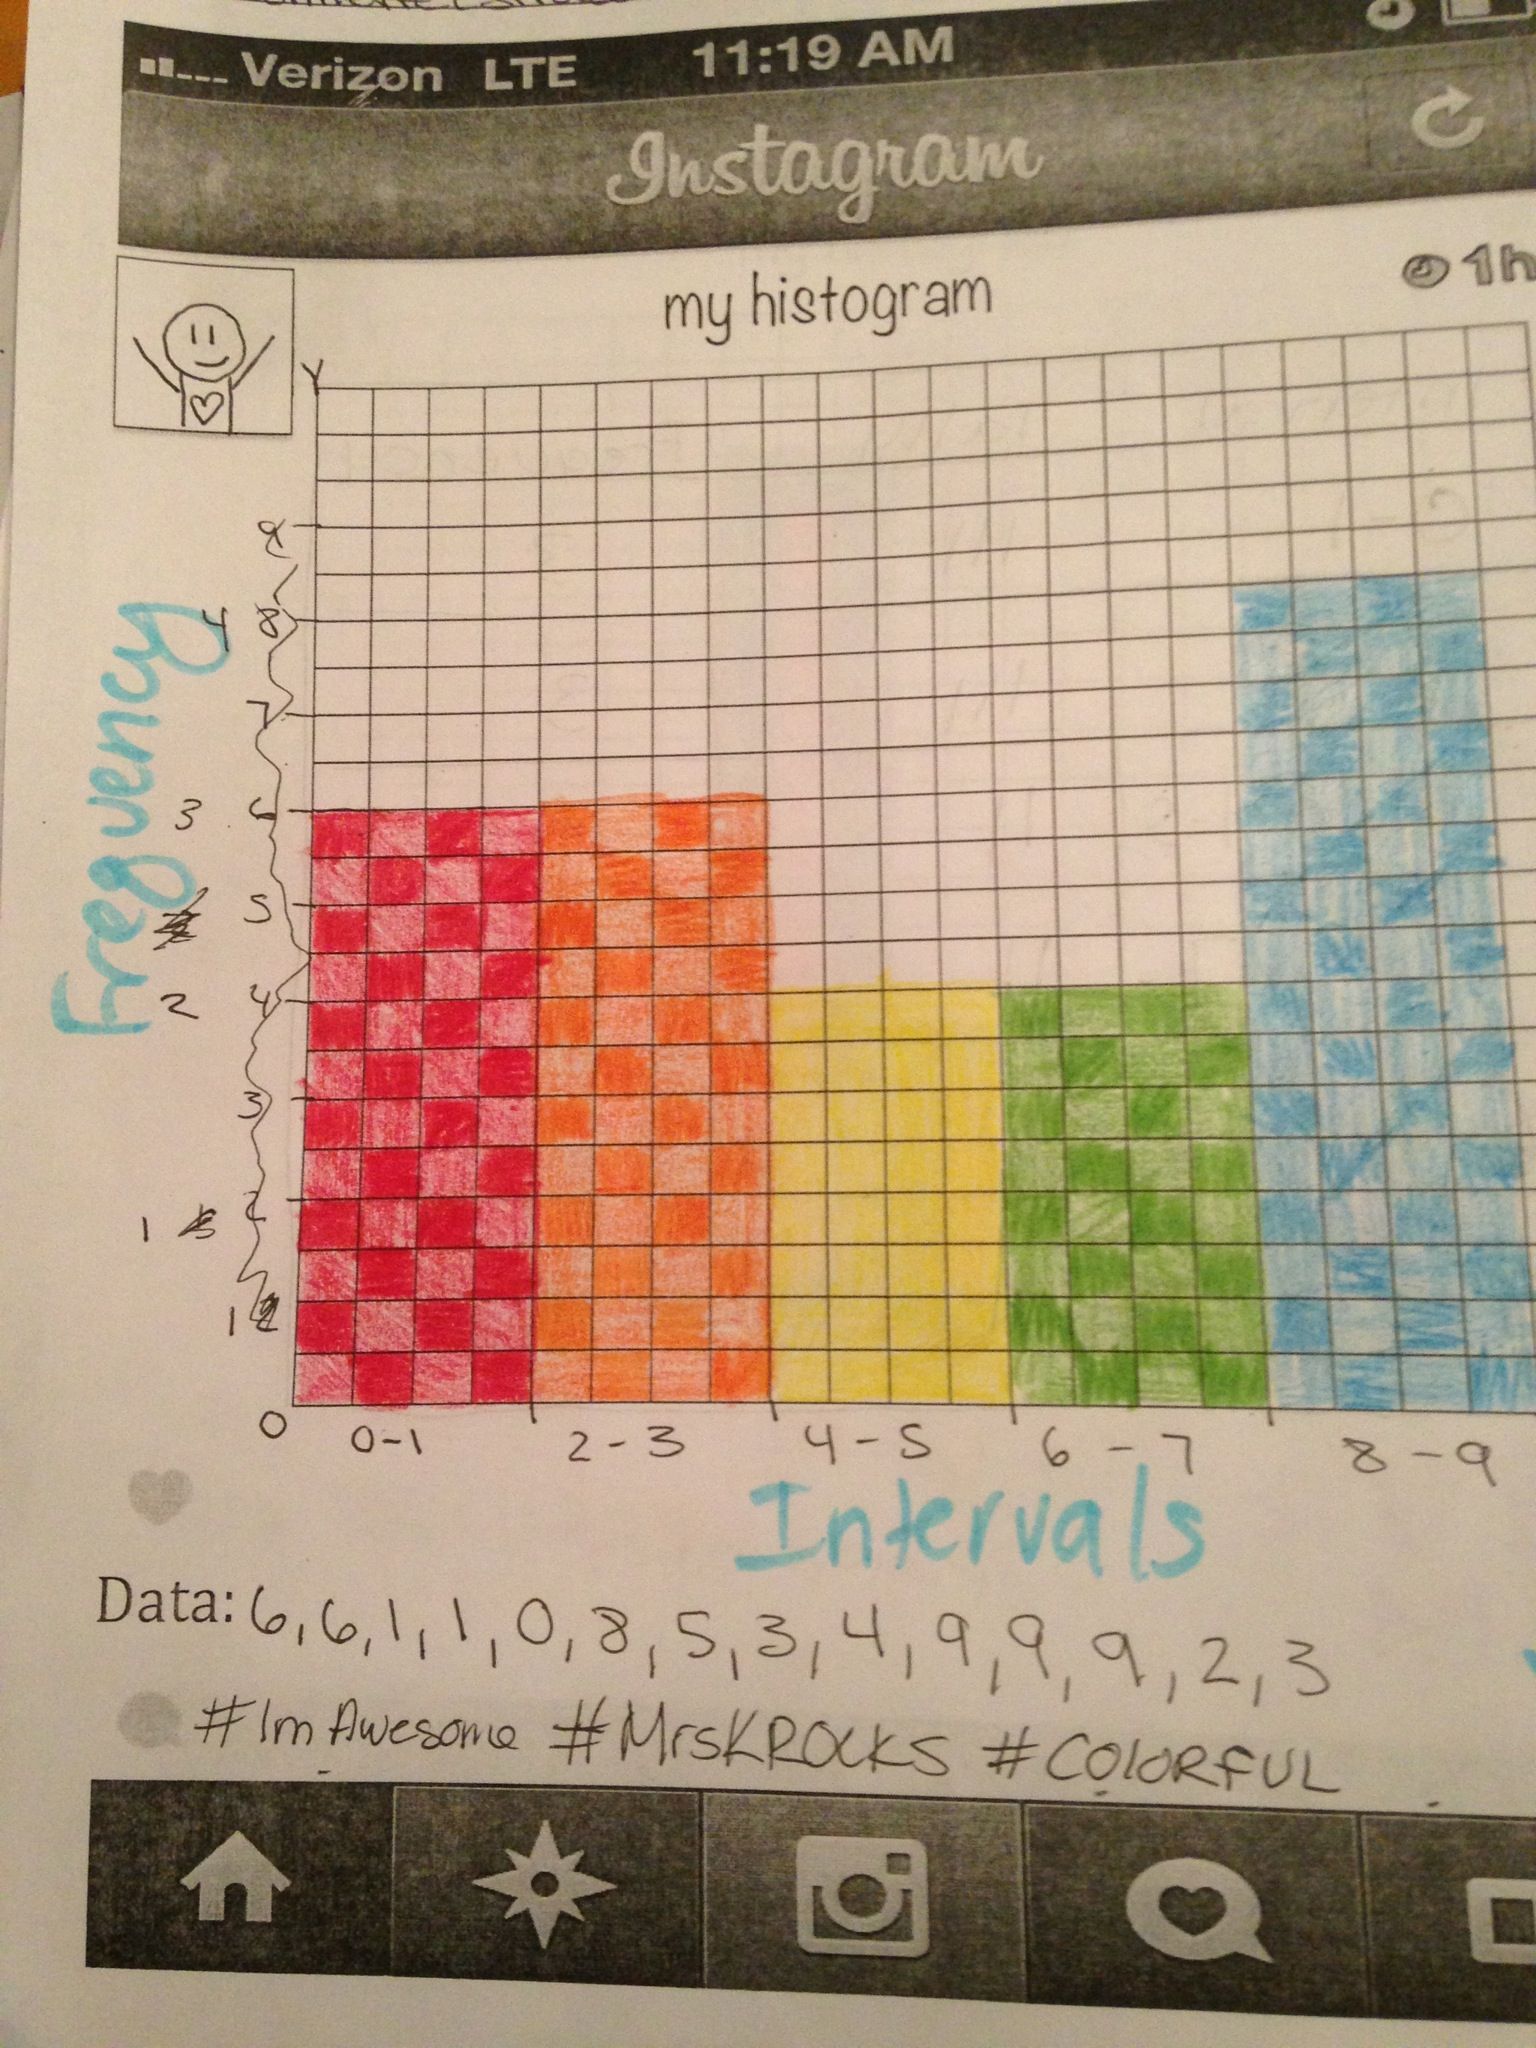 Verizon LTE 11:19 AM
Instagram
my histogram
1h
Y
9
4 8
7
3 6
5
2 4
3
1 2
1
0
Frequency
0-1 2-3 4-5 6-7 8-9
Intervals
Data: 6, 6, 1, 1, 0, 8, 5, 3, 4, 9, 9, 9, 2, 3
#ImAwesome #MrsKROCKS #COlORFUL